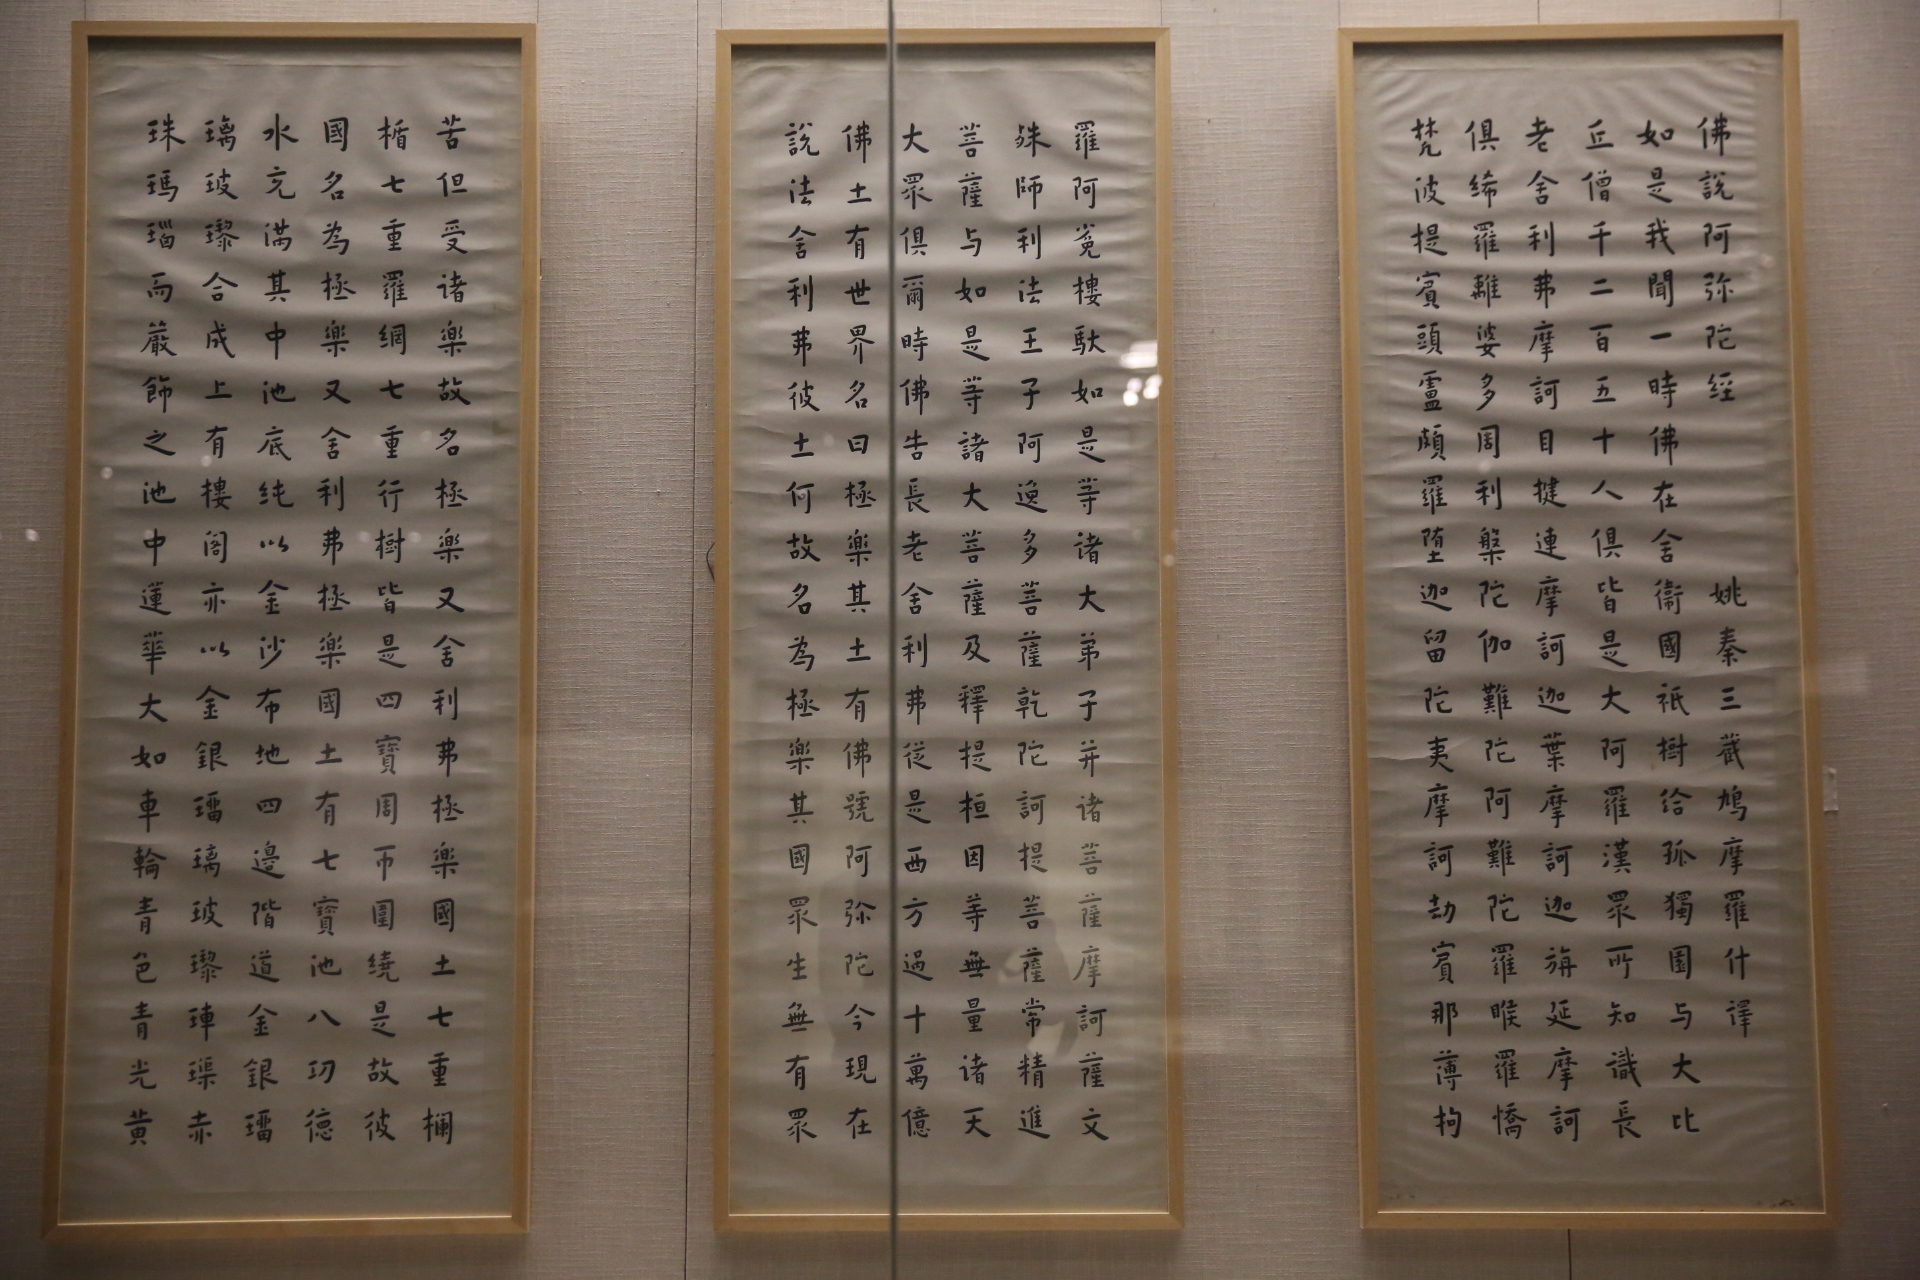 佛說阿弥陀經 姚秦三藏鳩摩羅什譯
如是我聞一時佛在舍衞國祇樹給孤獨園与大比
丘僧千二百五十人俱皆是大阿羅漢眾所知識長
老舍利弗摩訶目揵連摩訶迦葉摩訶迦旃延摩訶
俱絺羅離婆多周利槃陀伽難陀阿難陀羅睺羅憍
梵波提賓頭盧頗羅堕迦留陀夷摩訶劫賓那薄拘
羅阿㝹樓馱如是等诸大弟子并诸菩薩摩訶薩文
殊師利法王子阿逸多菩薩乾陀訶提菩薩常精進
菩薩与如是等諸大菩薩及釋提桓因等無量诸天
大眾俱爾時佛告長老舍利弗從是西方過十萬億
佛土有世界名曰極樂其土有佛號阿弥陀今現在
說法舍利弗彼土何故名為極樂其國眾生無有眾
苦但受诸樂故名極樂又舍利弗極樂國土七重欄
楯七重羅網七重行樹皆是四寶周帀圍繞是故彼
國名為極樂又舍利弗極樂國土有七寶池八功德
水充满其中池底纯以金沙布地四邊階道金銀瑠
璃玻瓈合成上有樓阁亦以金銀瑠璃玻瓈硨磲赤
珠瑪瑙而嚴飾之池中蓮華大如車輪青色青光黄